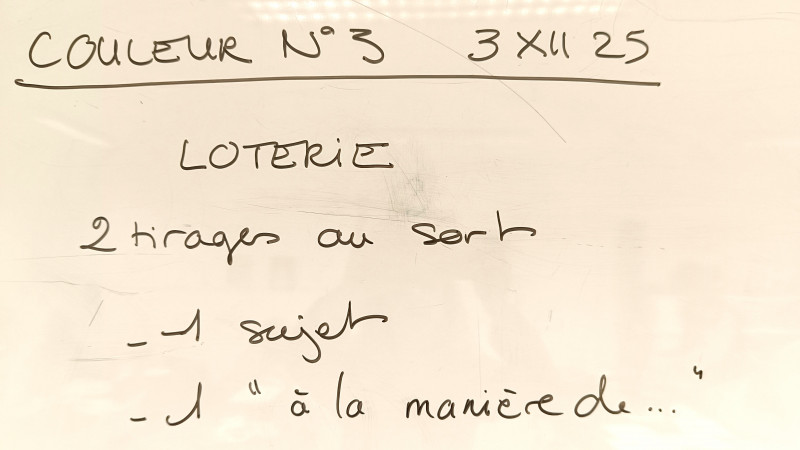 COULEUR N°3 3 XII 25
LOTERIE
2 tirages au sort
- 1 sujet
- 1 " à la manière de... "